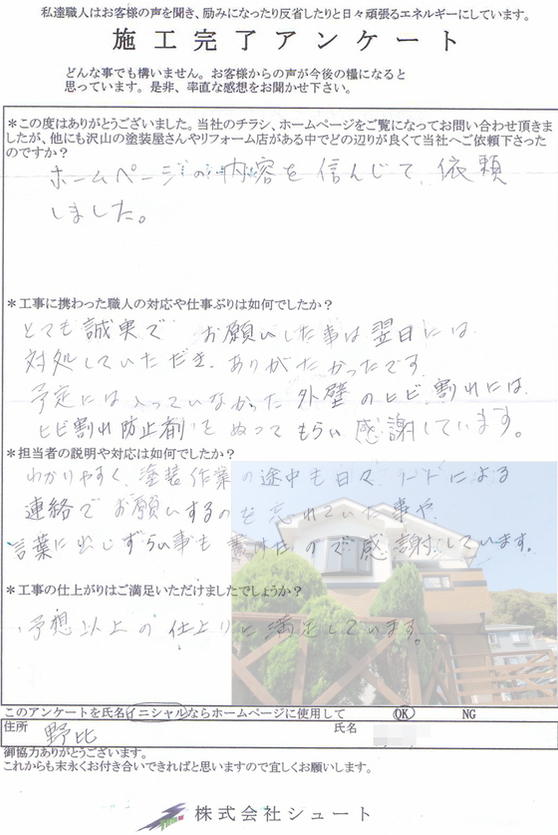 私達職人はお客様の声を聞き、励みになったり反省したりと日々頑張るエネルギーにしています。
施工完了アンケート
どんな事でも構いません。お客様からの声が今後の糧になると
思っています。是非、率直な感想をお聞かせ下さい。
＊この度はありがとうございました。当社のチラシ、ホームページをご覧になってお問い合わせ頂きま
したが、他にも沢山の塗装屋さんやリフォーム店がある中でどの辺りが良くて当社へご依頼下さった
のですか？
ホームページの内容を信じて、依頼
しました。
＊工事に携わった職人の対応や仕事ぶりは如何でしたか？
とても誠実で お願いした事は翌日には
対処していただき、ありがたかったです。
予定には入っていなかった外壁のヒビ割れには、
ヒビ割れ防止剤をぬってもらい感謝しています。
＊担当者の説明や対応は如何でしたか？
わかりやすく、塗装作業の途中も日々ノートによる
連絡でお願いするのを忘れていた事や、
言葉に出しずらい事も書けたので感謝しています。
＊工事の仕上がりはご満足いただけましたでしょうか？
予想以上の仕上りに満足しています。
このアンケートを氏名イニシャルならホームページに使用して OK NG
住所 野比 氏名
御協力ありがとうございます。
これからも末永くお付き合いできればと思いますので宜しくお願いします。
株式会社シュート